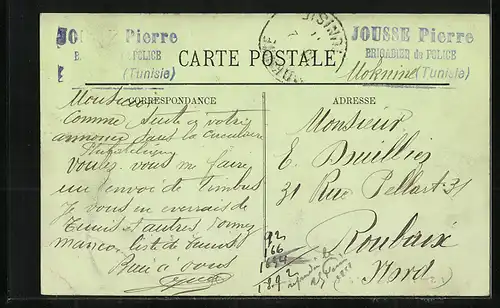 JOUSSE Pierre
POLICE
(Tunisie)
CARTE POSTALE
JOUSSE Pierre
BRIGADIER de POLICE
Moknine (Tunisie)
CORRESPONDANCE
ADRESSE
Monsieur
Comme suite à votre
annonce dans la circulaire
Philatélique
Voulez-vous me faire
un envoi de timbres
Je vous en enverrais de
Tunis et autres, donnez
manco list de Tunis
Bien à vous
Jousse
Monsieur
E.
31 Rue Pellart 31
Roubaix
Nord
92
166